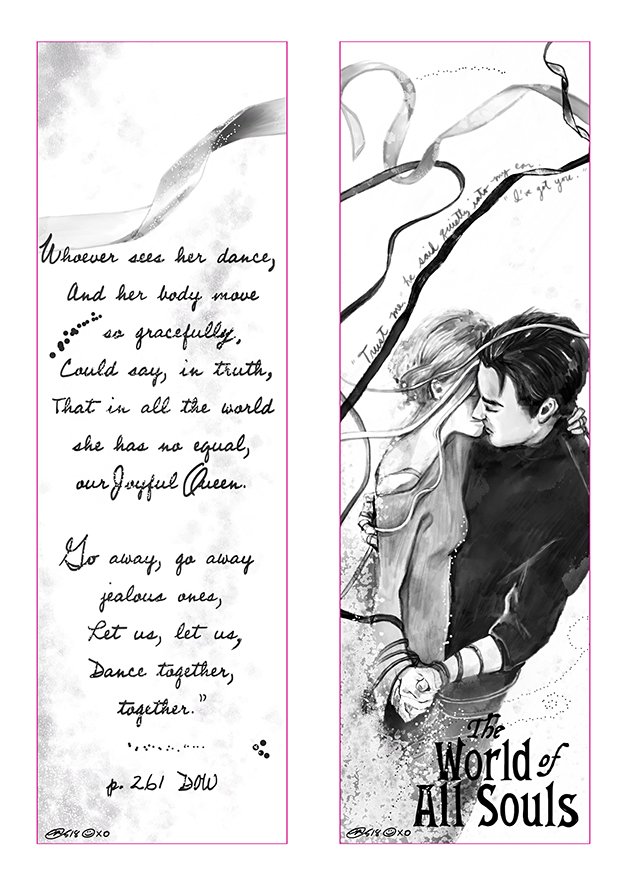 Whoever sees her dance,
And her body move
so gracefully,
Could say, in truth,
That in all the world
she has no equal,
our Joyful Queen.
Go away, go away
jealous ones,
Let us, let us,
Dance together,
together."
p. 261 DOW
618 XO
"Trust me, he said quietly into my ear.
"I've got you."
The
World of
All Souls
618 XO